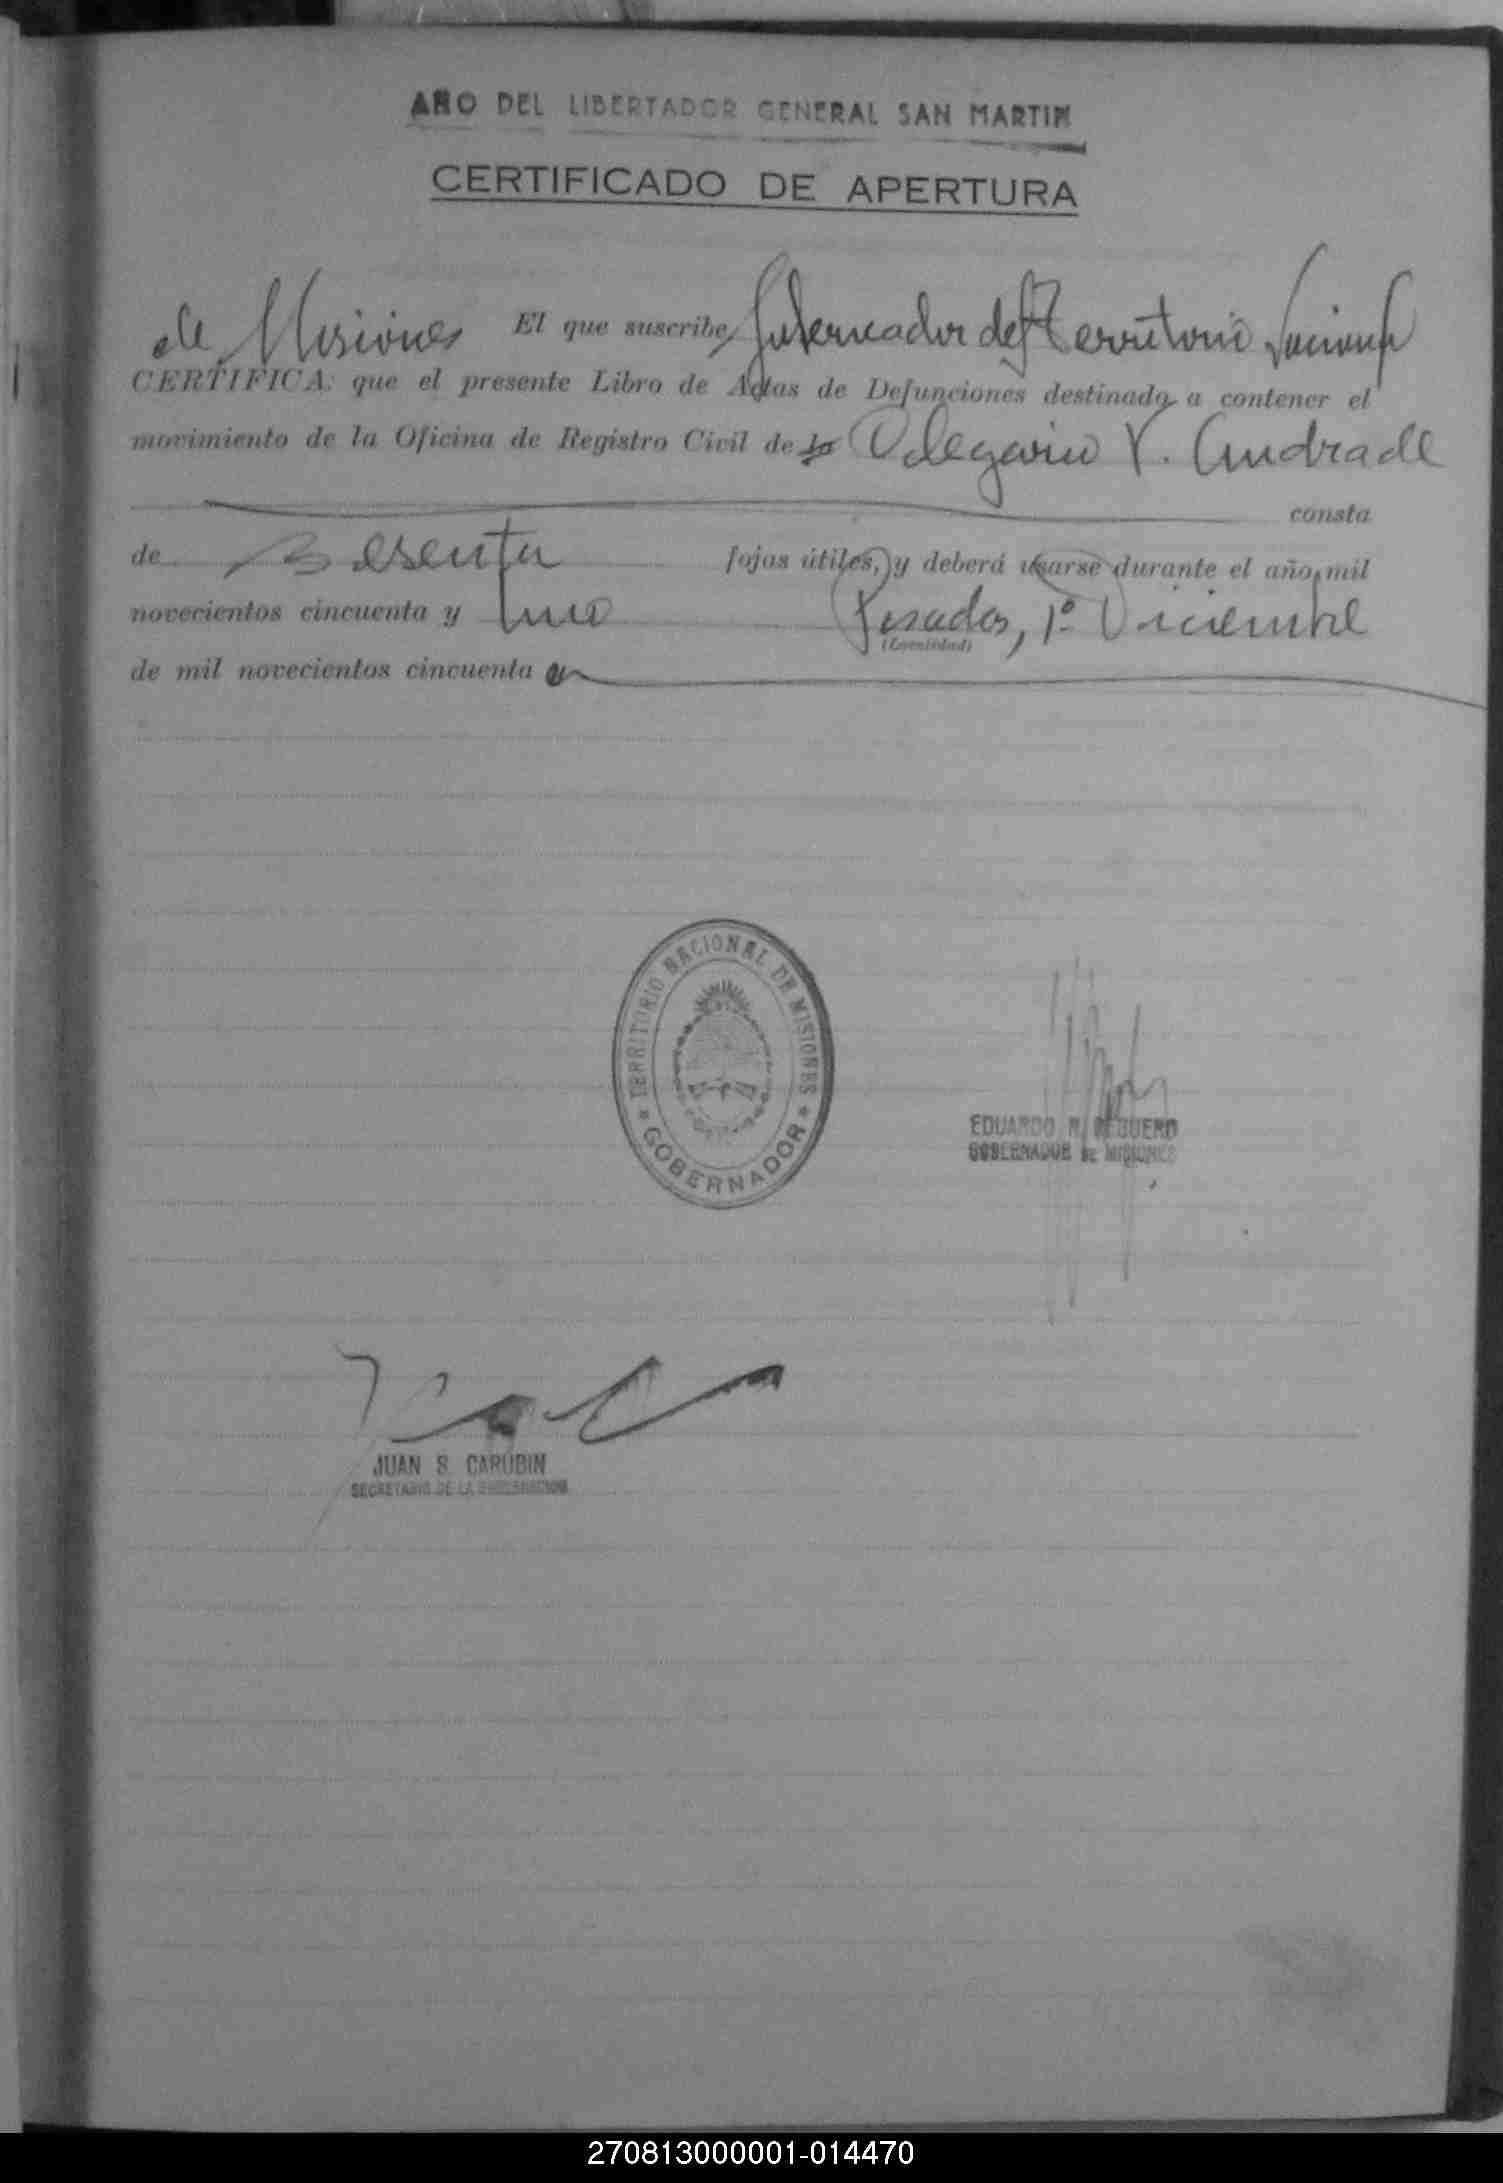 AÑO DEL LIBERTADOR GENERAL SAN MARTIN
CERTIFICADO DE APERTURA
de Misiones El que suscribe, Gobernador del Territorio Nacional
CERTIFICA: que el presente Libro de Actas de Defunciones destinado a contener el
movimiento de la Oficina de Registro Civil de la Olegario V. Andrade
consta
de Sesenta fojas útiles, y deberá usarse durante el año mil
novecientos cincuenta y uno Posadas, 1º Diciembre
(Localidad)
de mil novecientos cincuenta
TERRITORIO NACIONAL DE MISIONES
GOBERNADOR
EDUARDO
GOBERNADOR DE MISIONES
JUAN S. CARUBIN
SECRETARIO DE LA GOBERNACION
270813000001-014470